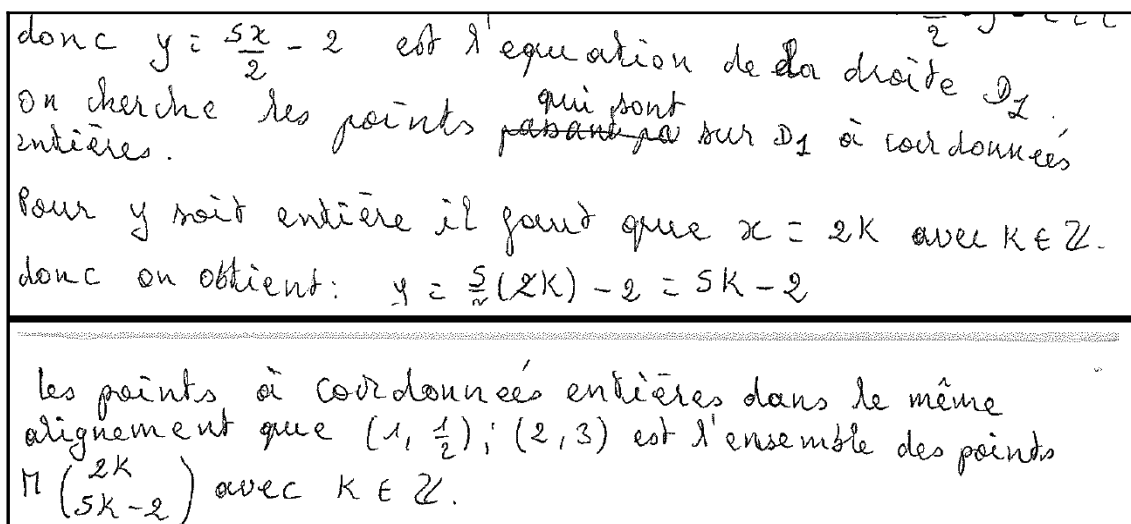 donc y = 5x/2 - 2 est l'equation de la droite D1.
on cherche les points qui sont sur D1 à coordonnées
entières.
Pour y soit entière il faut que x = 2K avec K ∈ ℤ.
donc on obtient : y = 5/2 (2K) - 2 = 5K - 2
les points à coordonnées entières dans le même
alignement que (1, 1/2) ; (2, 3) est l'ensemble des points
M (2K 5K-2) avec K ∈ ℤ.